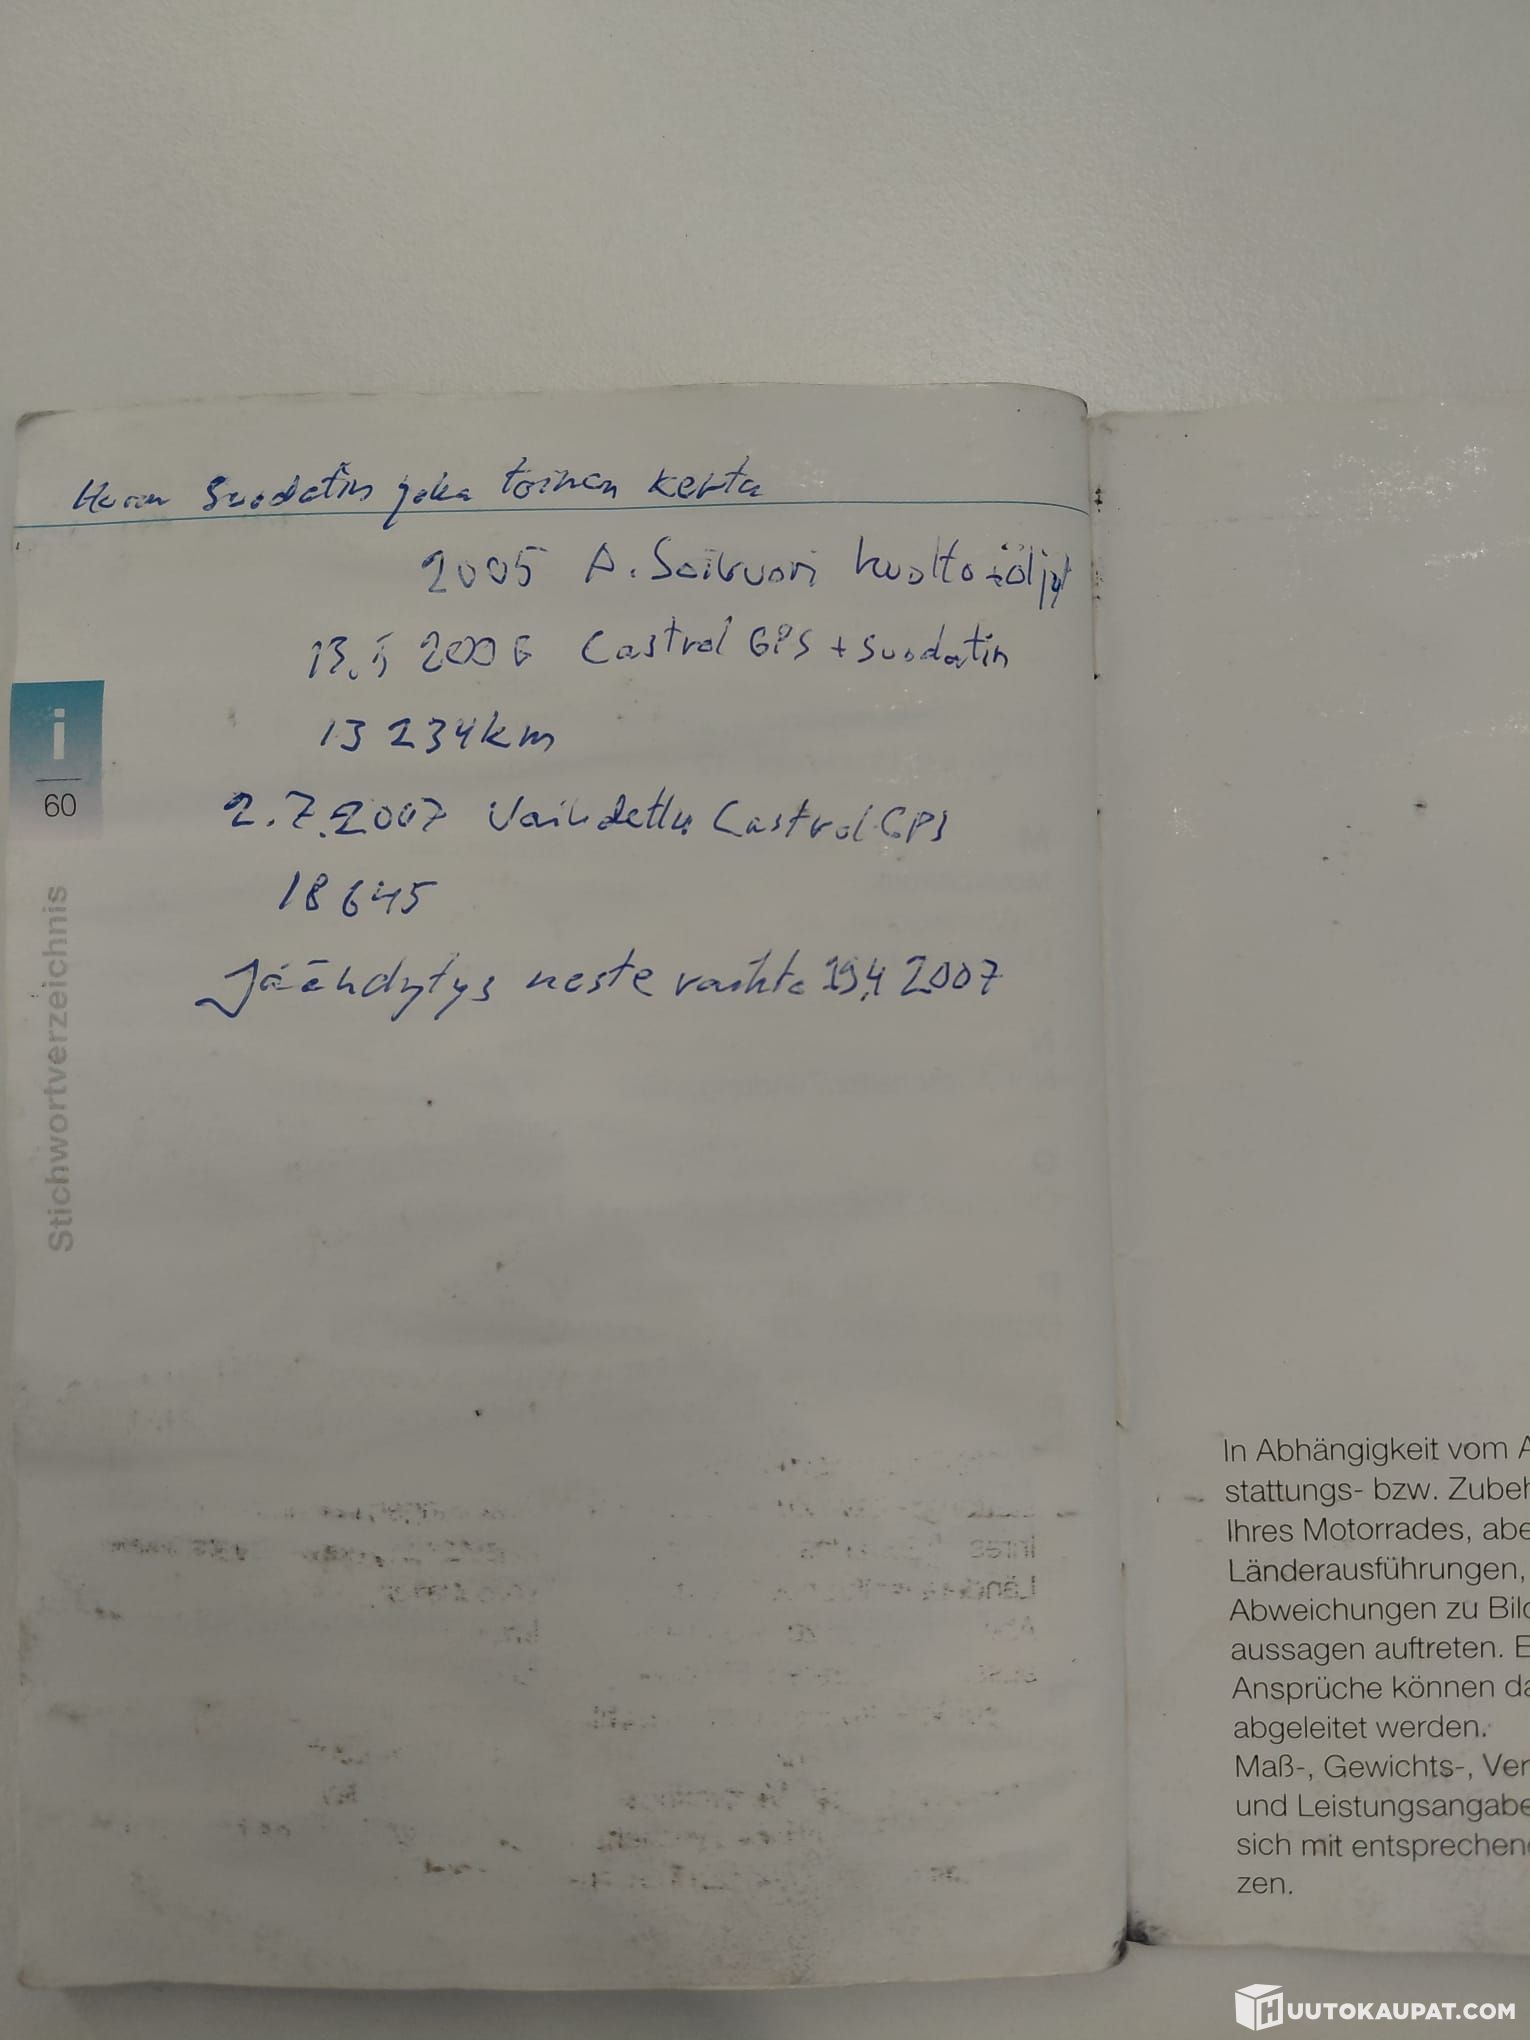 Huom Suodatin joka toinen kerta
2005 A. Soikuori huolto + öljyt
13.5 2006 Castrol GPS + suodatin
13 234 km
2.7.2007 Vaihdettu Castrol GPS
18 645
Jäähdytys neste vaihto 19.4 2007
i
60
Stichwortverzeichnis
In Abhängigkeit vom A
stattungs- bzw. Zubeh
Ihres Motorrades, abe
Länderausführungen,
Abweichungen zu Bild
aussagen auftreten. E
Ansprüche können da
abgeleitet werden.
Maß-, Gewichts-, Ver
und Leistungsangabe
sich mit entsprechend
zen.
HUUTOKAUPAT.COM